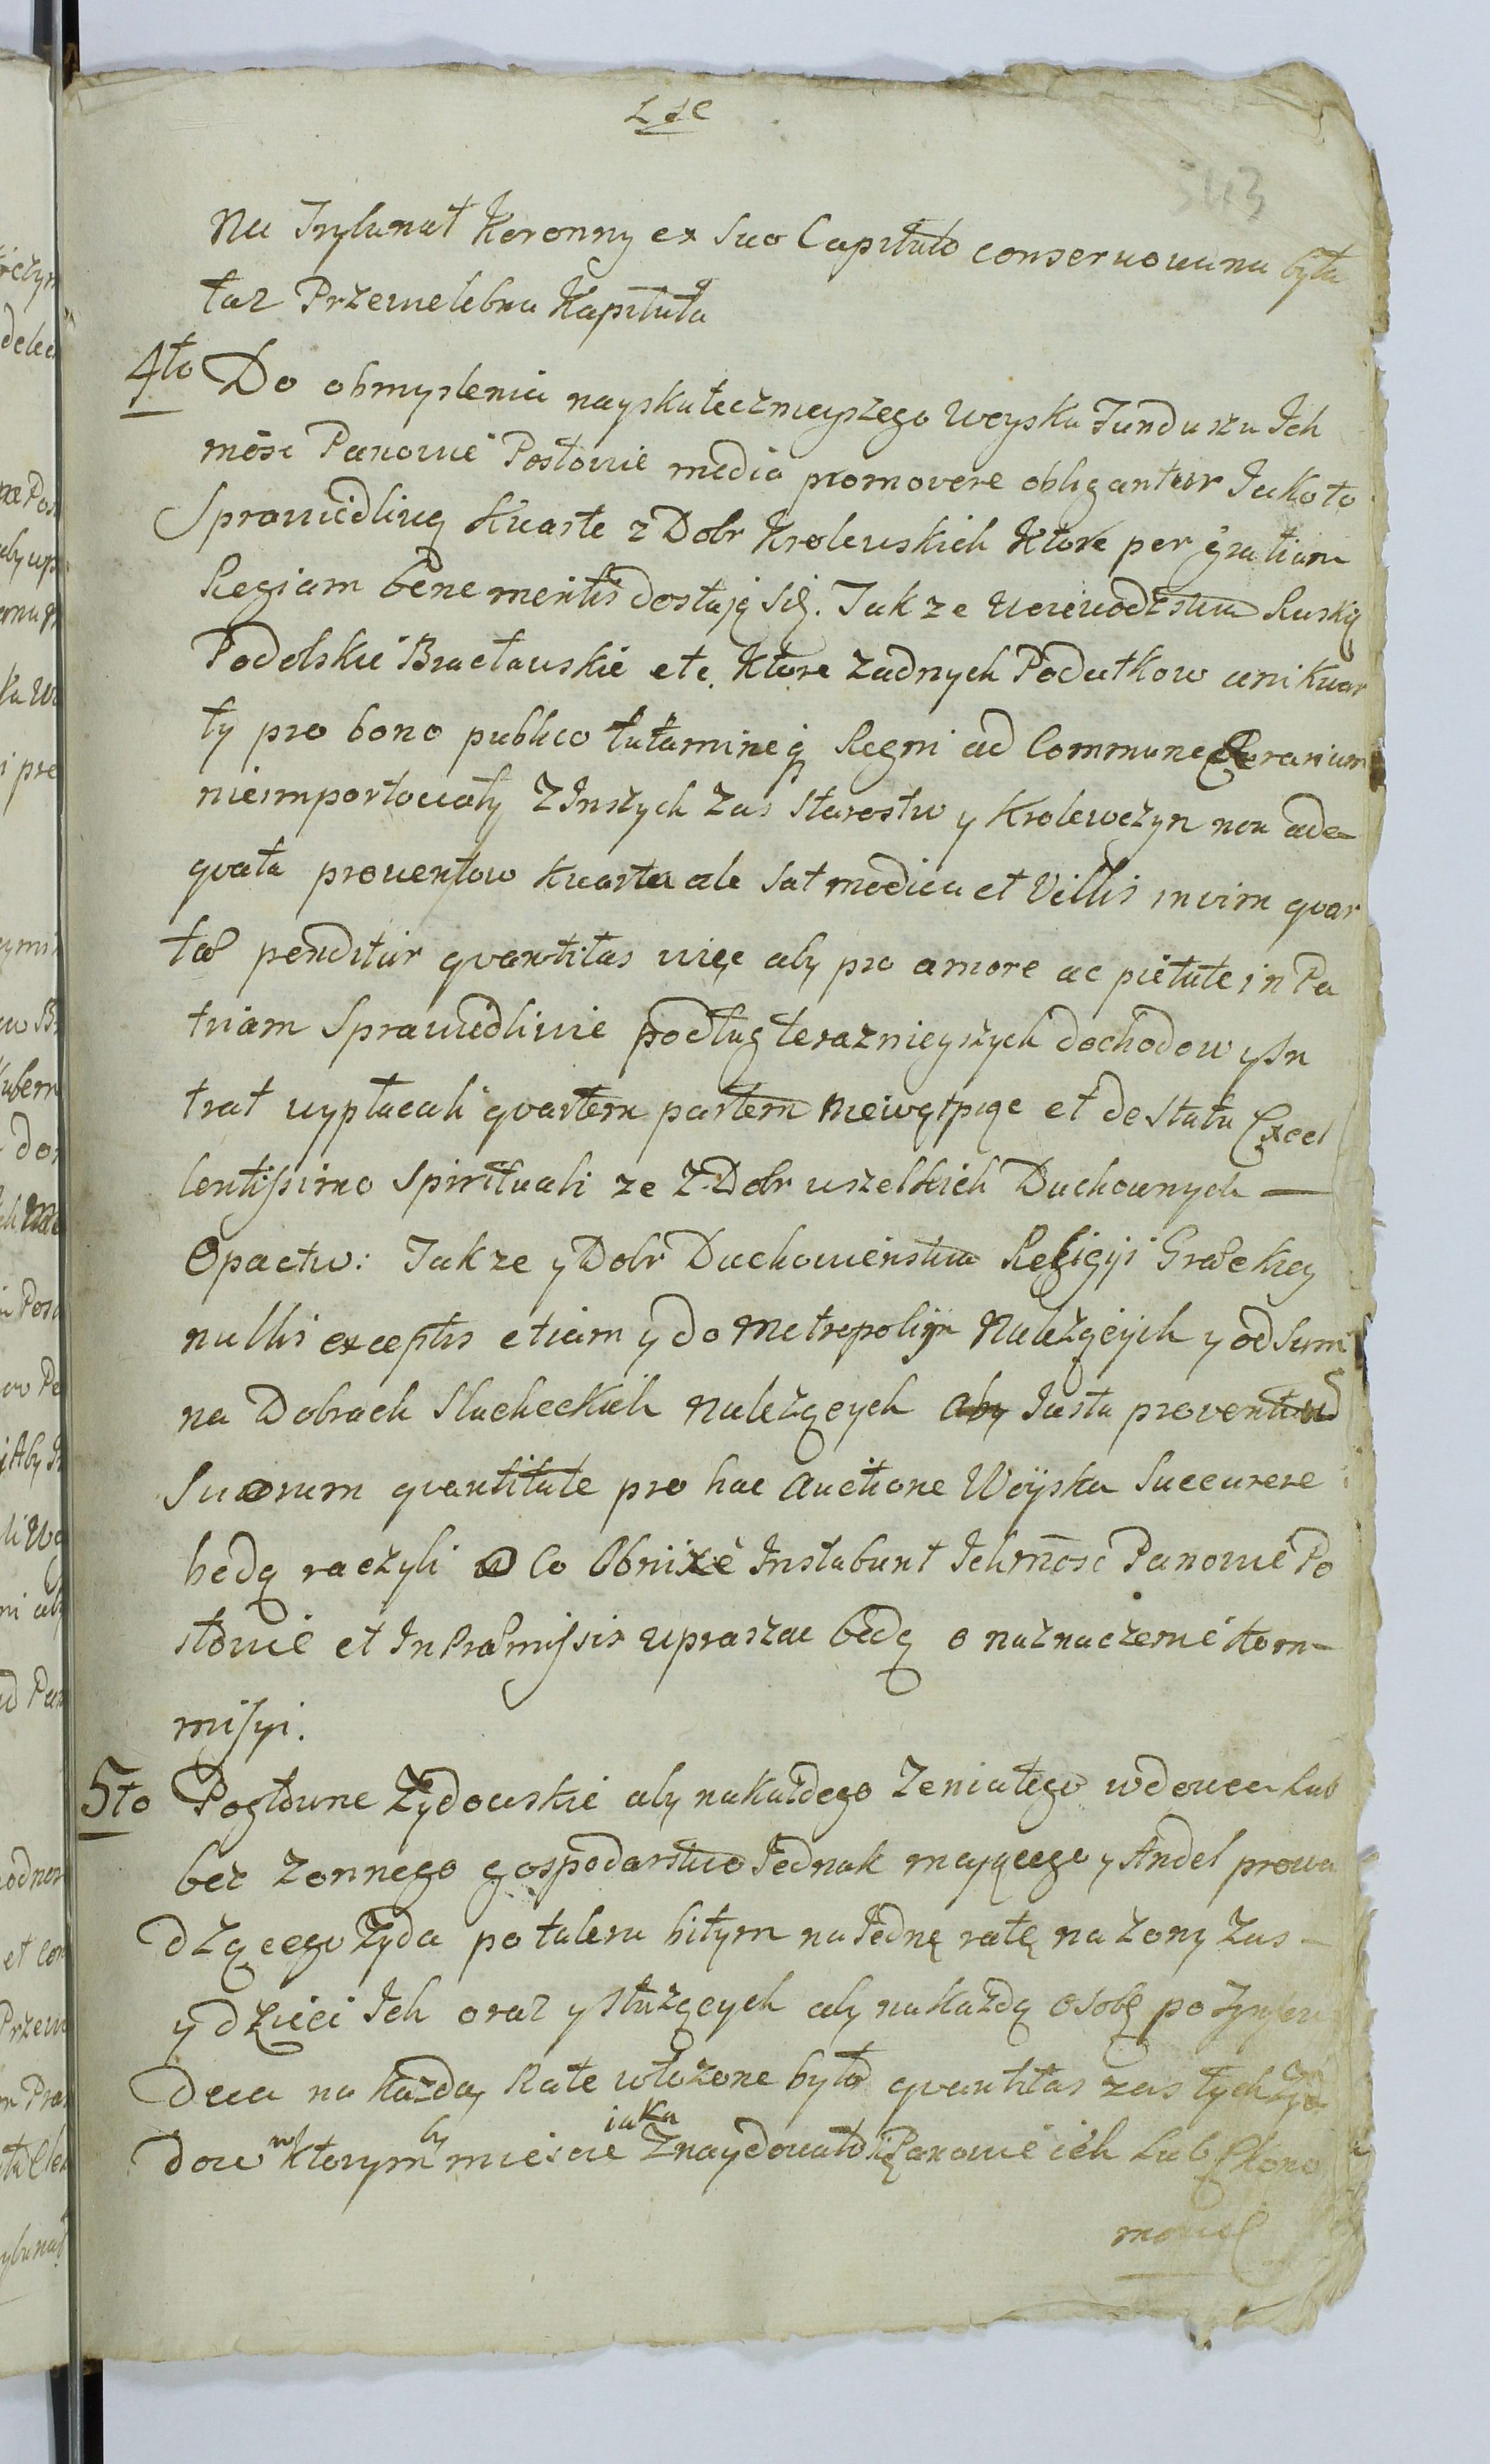 543
Na Trybunał Koronny ex suo Capitulo conserwowana była
taz Przewelebna Kapituła
4to Do obmyslenia nayskutecznieyszego Woyska Funduszu Ich
mość Panowie Posłowie media promovere obligantur Jako to
Sprawiedliwą Kwarte z Dobr Krolewskich Ktore per gratiam
Regiam bene meritis dostają się. Jak ze Woiewodztwa Ruskie
Podolskie Bracławskie etc. Ktore zadnych Podatkow ani Kwar
ty pro bono publico tutamineq Regni ad Commune Aerarium
nieimportowały Z Inszych zas Starostw y Krolewczyn non ade-
qvata proventow kwarta ale sat modica et Villis in vim qvar
tae penditur qvantitas więc aby pro amore ac pietate in Pa
triam Sprawiedliwie podług teraznieyszych dochodow y In
trat wypłacali qvartem partem niewątpiąc et de Statu Excel
lentissimo Spirituali ze Z Dobr wszelkich Duchownych —
Opactw: Jak ze y Dobr Duchowienstwa Religiji Graeckiey
nullis exceptis etiam y do Metropolijm Nalezących y od Sum
na Dobrach Slacheckich Nalezących aby Justa proventuu
Suorum qvantitate pro hac auctione Woyska Succurere
będą raczyli o Co Obnixe Instabunt Ichmość Panowie Po
słowie et In Praemissis upraszac będą o naznaczenie Kom-
missyi.
5to Pogłowne Zydowskie aby na Każdego Zeniatego wdowca Lub
bez Zonnego gospodarstwo Jednak mającego y Andel prowa
dzącego Zyda po taleru bitym na Jednę ratę na Zony Zas —
y dzieci Ich oraz y słuzących aby na Każdą osobę po Tynfow
dwa na Każdą Rate włożone było qvantitas zas tych Zy
dow w Ktorym by miescie iaka Znaydowała się Panowie ich Lub Ekono
mowie